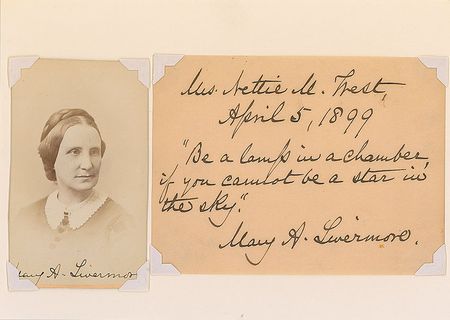 Mrs. Nettie M. West,
April 5, 1899
"Be a lamp in a chamber,
if you cannot be a star in
the sky."
Mary A. Livermore.
Mary A. Livermor